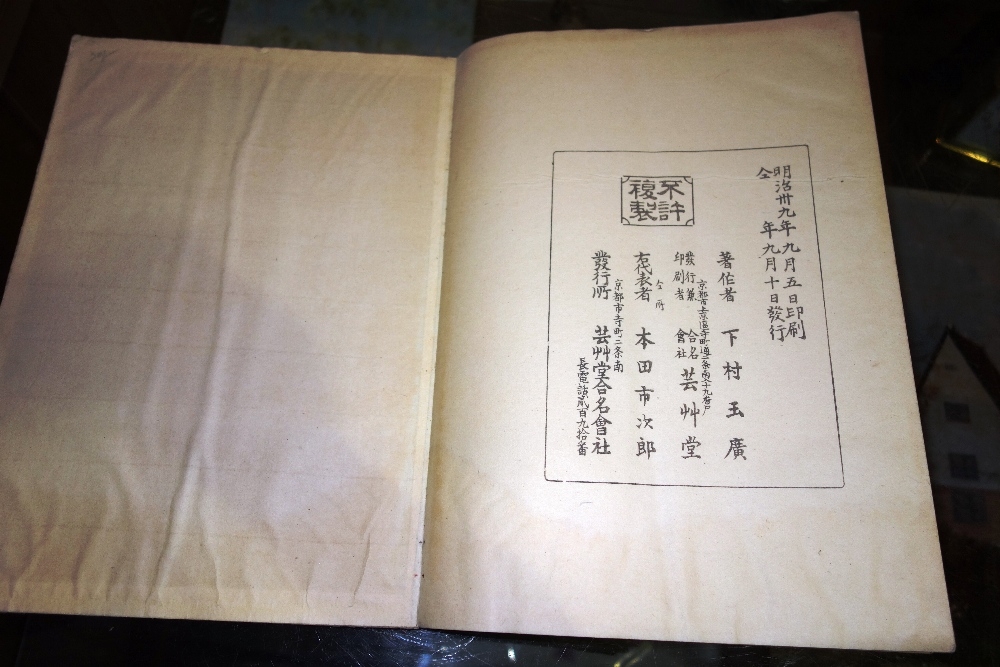 明治卅九年九月五日印刷
仝年九月十日發行
不許
複製
著作者 下村玉廣
京都市上京區寺町通二条南入十九番戸
發行兼
印刷者
合名
會社
芸艸堂
仝所
右代表者 本田市次郎
京都市寺町二条南
發行所 芸艸堂合名會社
長電話貳百九拾番